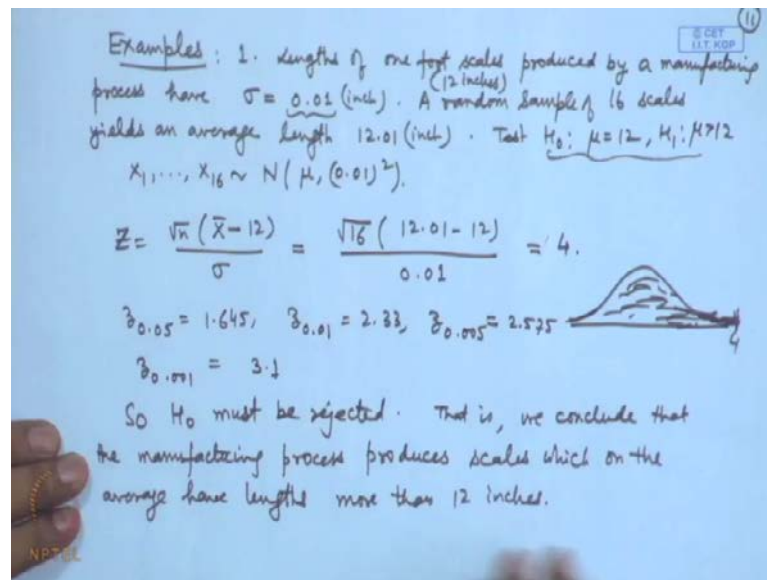 11
© CET
I.I.T. KGP
Examples : 1. Lengths of one foot scales produced by a manufacturing
(12 inches)
process have σ = 0.01 (inch). A random sample of 16 scales
yields an average length 12.01 (inch). Test H₀: μ=12, H₁: μ>12
X₁, ..., X₁₆ ~ N(μ, (0.01)²).
Z = √n (X̄ - 12) / σ = √16 (12.01 - 12) / 0.01 = 4.
z₀.₀₅ = 1.645, z₀.₀₁ = 2.33, z₀.₀₀₅ = 2.575
4
z₀.₀₀₁ = 3.1
So H₀ must be rejected. That is, we conclude that
the manufacturing process produces scales which on the
average have lengths more than 12 inches.
NPTEL